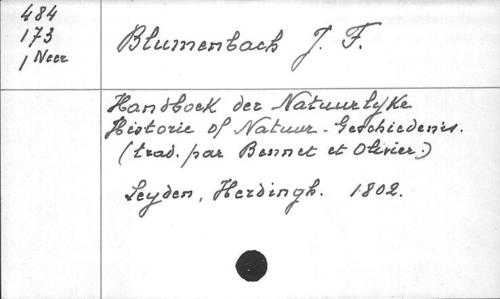 484
173
1 Neer
Blumenbach J. F.
Handboek der Natuurlyke
Historie of Natuur-Geschiedenis.
(trad. par Bennet et Olivier.)
Leyden, Herdingh. 1802.